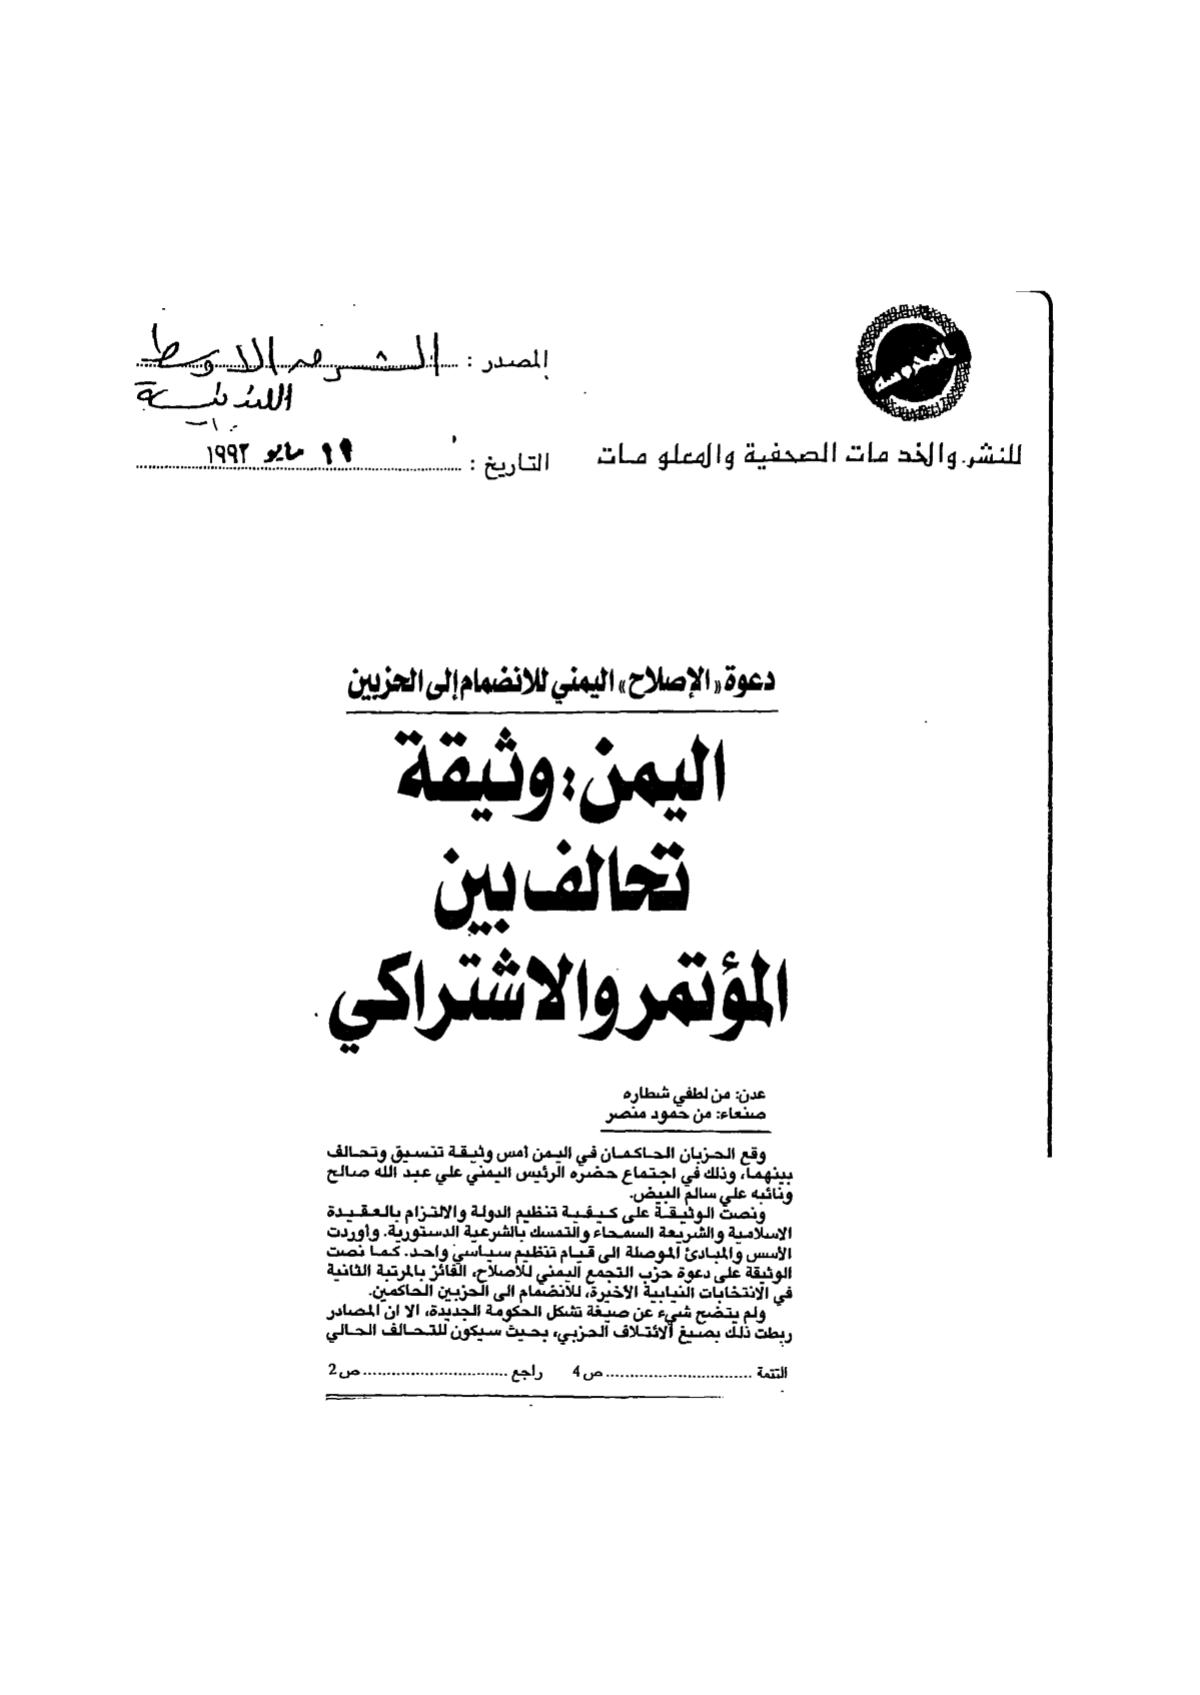 المحروسة
للنشر والخدمات الصحفية والمعلومات
المصدر : الشرق الاوسط
اللندنية
التاريخ : ١٩ مايو ١٩٩٣
دعوة «الإصلاح» اليمني للانضمام إلى الحزبين
اليمن: وثيقة
تحالف بين
المؤتمر والاشتراكي
عدن: من لطفي شطاره
صنعاء: من حمود منصر
وقع الحزبان الحاكمان في اليمن أمس وثيقة تنسيق وتحالف
بينهما، وذلك في اجتماع حضره الرئيس اليمني علي عبد الله صالح
ونائبه علي سالم البيض.
ونصت الوثيقة على كيفية تنظيم الدولة والالتزام بالعقيدة
الاسلامية والشريعة السمحاء والتمسك بالشرعية الدستورية. وأوردت
الأسس والمبادئ الموصلة الى قيام تنظيم سياسي واحد. كما نصت
الوثيقة على دعوة حزب التجمع اليمني للاصلاح، الفائز بالمرتبة الثانية
في الانتخابات النيابية الأخيرة، للانضمام الى الحزبين الحاكمين.
ولم يتضح شيء عن صيغة تشكل الحكومة الجديدة، الا ان المصادر
ربطت ذلك بصيغ الائتلاف الحزبي، بحيث سيكون للتحالف الحالي
التتمة .............................. ص 4 راجع .............................. ص 2